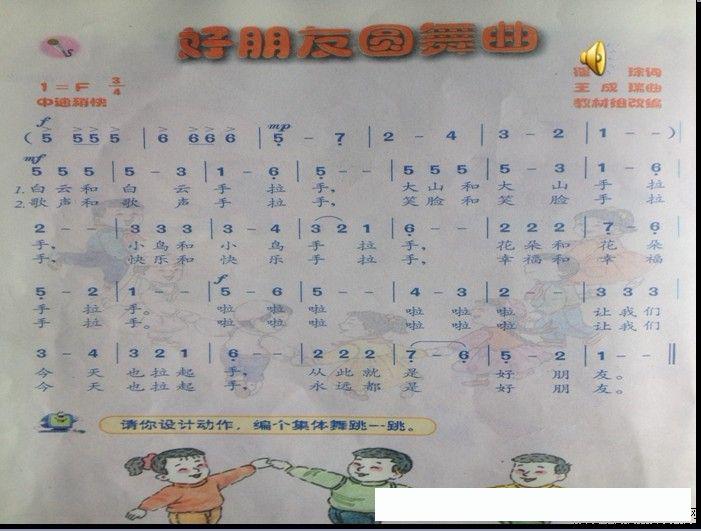 好朋友圆舞曲
1=F 3/4
中速稍快
涂词
王成瑞曲
教材组改编
f mp
( 5 5 5 5 | 6 6 6 6 | 5 - 7 | 2 - 4 | 3 - 2 | 1 - - ) |
mf
5 5 5 | 5 - 3 | 1 - 6 | 5 - - | 5 5 5 | 5 - 3 | 1 - 6 |
1. 白云和 白 云 手 拉 手, 大山和 大 山 手 拉
2. 歌声和 歌 声 手 拉 手, 笑脸和 笑 脸 手 拉
2 - - | 3 3 3 | 3 - 4 | 3 2 1 | 6 - - | 2 2 2 | 7 - 6 |
手, 小鸟和 小 鸟 手 拉 手, 花朵和 花 朵
手, 快乐和 快 乐 手 拉 手, 幸福和 幸 福
f
5 - 2 | 1 - - | 5 - 6 | 5 - - | 4 - 3 | 2 - - | 3 3 3 |
手 拉 手。 啦 啦 啦 啦 啦 啦 让我们
手 拉 手。 啦 啦 啦 啦 啦 啦 让我们
3 - 4 | 3 2 1 | 6 - - | 2 2 2 | 7 - 6 | 5 - 2 | 1 - - ‖
今 天 也拉起 手, 从此就 是 好 朋 友。
今 天 也拉起 手, 永远都 是 好 朋 友。
请你设计动作,编个集体舞跳一跳。